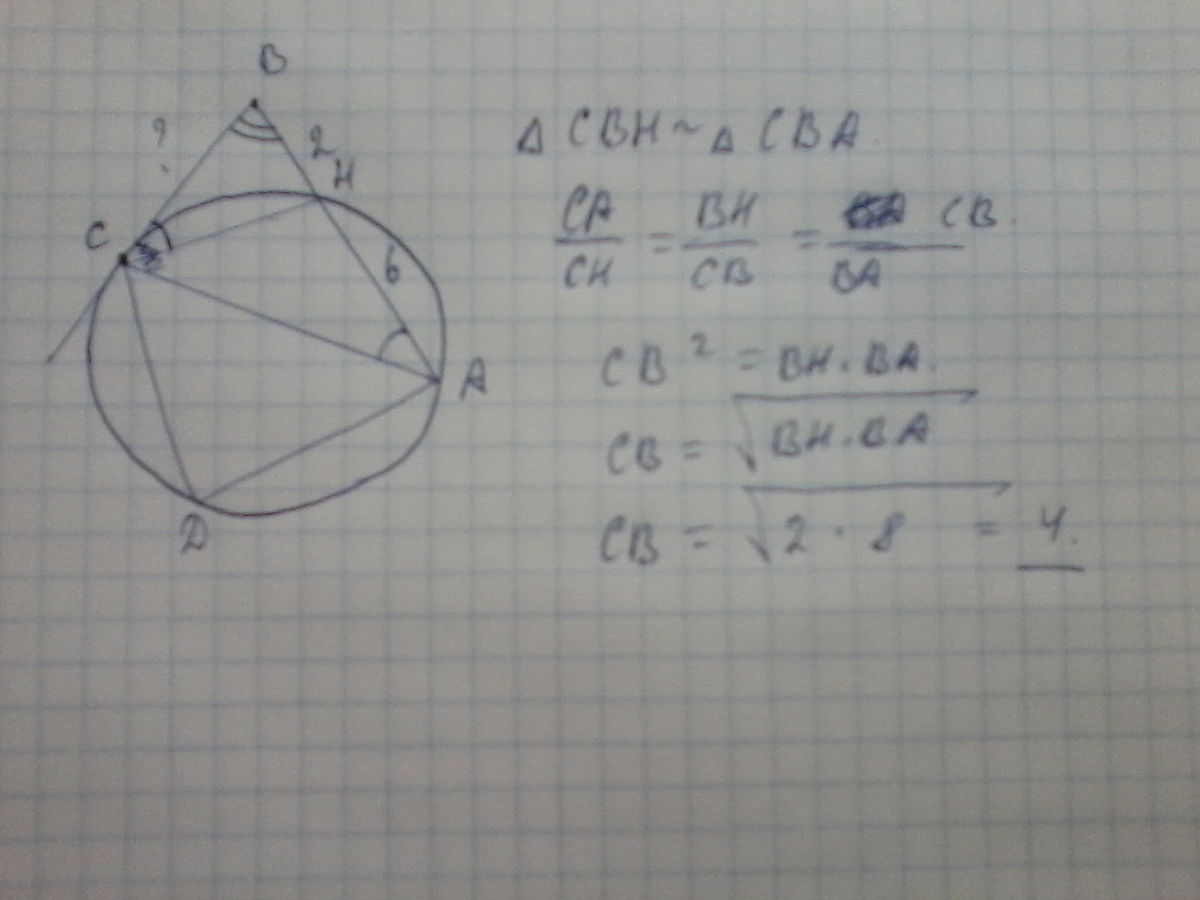 B
?
2
H
C
6
A
D
△ CBH ~ △ CBA
CA/CH = BH/CB = CB/BA.
CB² = BH · BA.
CB = √BH · BA
CB = √2 · 8 = 4.